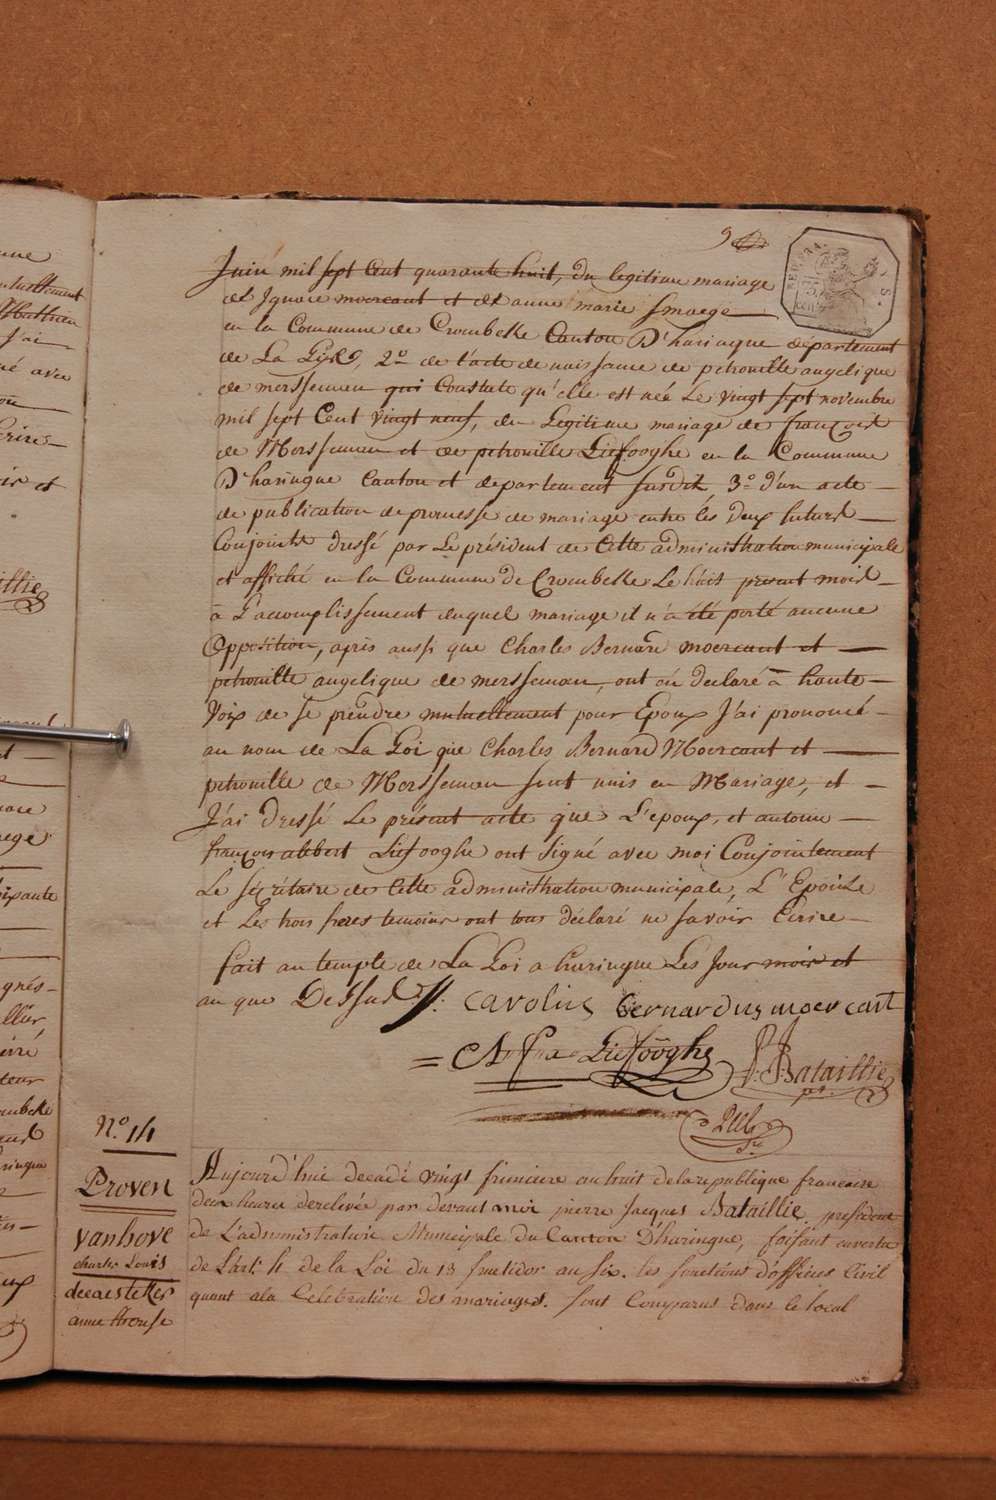 9
Juin mil sept Cent quarante huit, du legitime mariage
de Ignace moercant et de anne marie Smaege
en la Commune de Crombekke Canton D'haringue departement
de La Lys, 2º de l'acte de naissance de petronille angelique
de mersseman qui Constate qu'elle est née Le vingt sept novembre
mil sept Cent vingt neuf, du Legitime mariage de françois
de Mersseman et de petronille Liefooghe en la Commune
D'haringue Canton et departement susdit, 3º d'un acte
de publication de promesse de mariage entre les deux futurs
Conjoints dressé par Le président de Cette administration municipale
et affiché en la Commune de Crombekke Le huis present mois
à L'accomplissement duquel mariage il n'a été porté aucune
Opposition, après aussi que Charles Bernard moercant et
petronille angelique de mersseman, ont où declaré à haute
Voix de se prendre mutuellement pour Epoux J'ai prononcé
au nom de La Loi que Charles Bernard Moercant et
petronille de Mersseman sont unis en Mariage, et
J'ai dressé Le présent acte que L'epoux, et antoine
françois albert Liefooghe ont signé avec moi Conjointement
Le secrétaire de Cette administration municipale, L'Epouse
et Les trois freres temoins ont tous déclaré ne savoir Ecrire
fait au temple de La Loi a haringue Les Jour mois et
an que Dessus
Carolus Bernardus moercant
= A f x Liefooghe
P. J. Bataillie
pt.
Nº 14
Proven
vanhove
charles Louis
decaestekker
anne therese
Aujourd'hui decadi vingt frimaire an huit de la republique francaise
deux heures de relevée par devant moi pierre Jacques Bataillie president
de L'administration Municipale du Canton D'haringue, faisant en vertu
de L'art. 4 de la Loi du 13 fructidor an six. les fonctions d'officier Civil
quant a la Célébration des mariages. sont Comparus dans le local